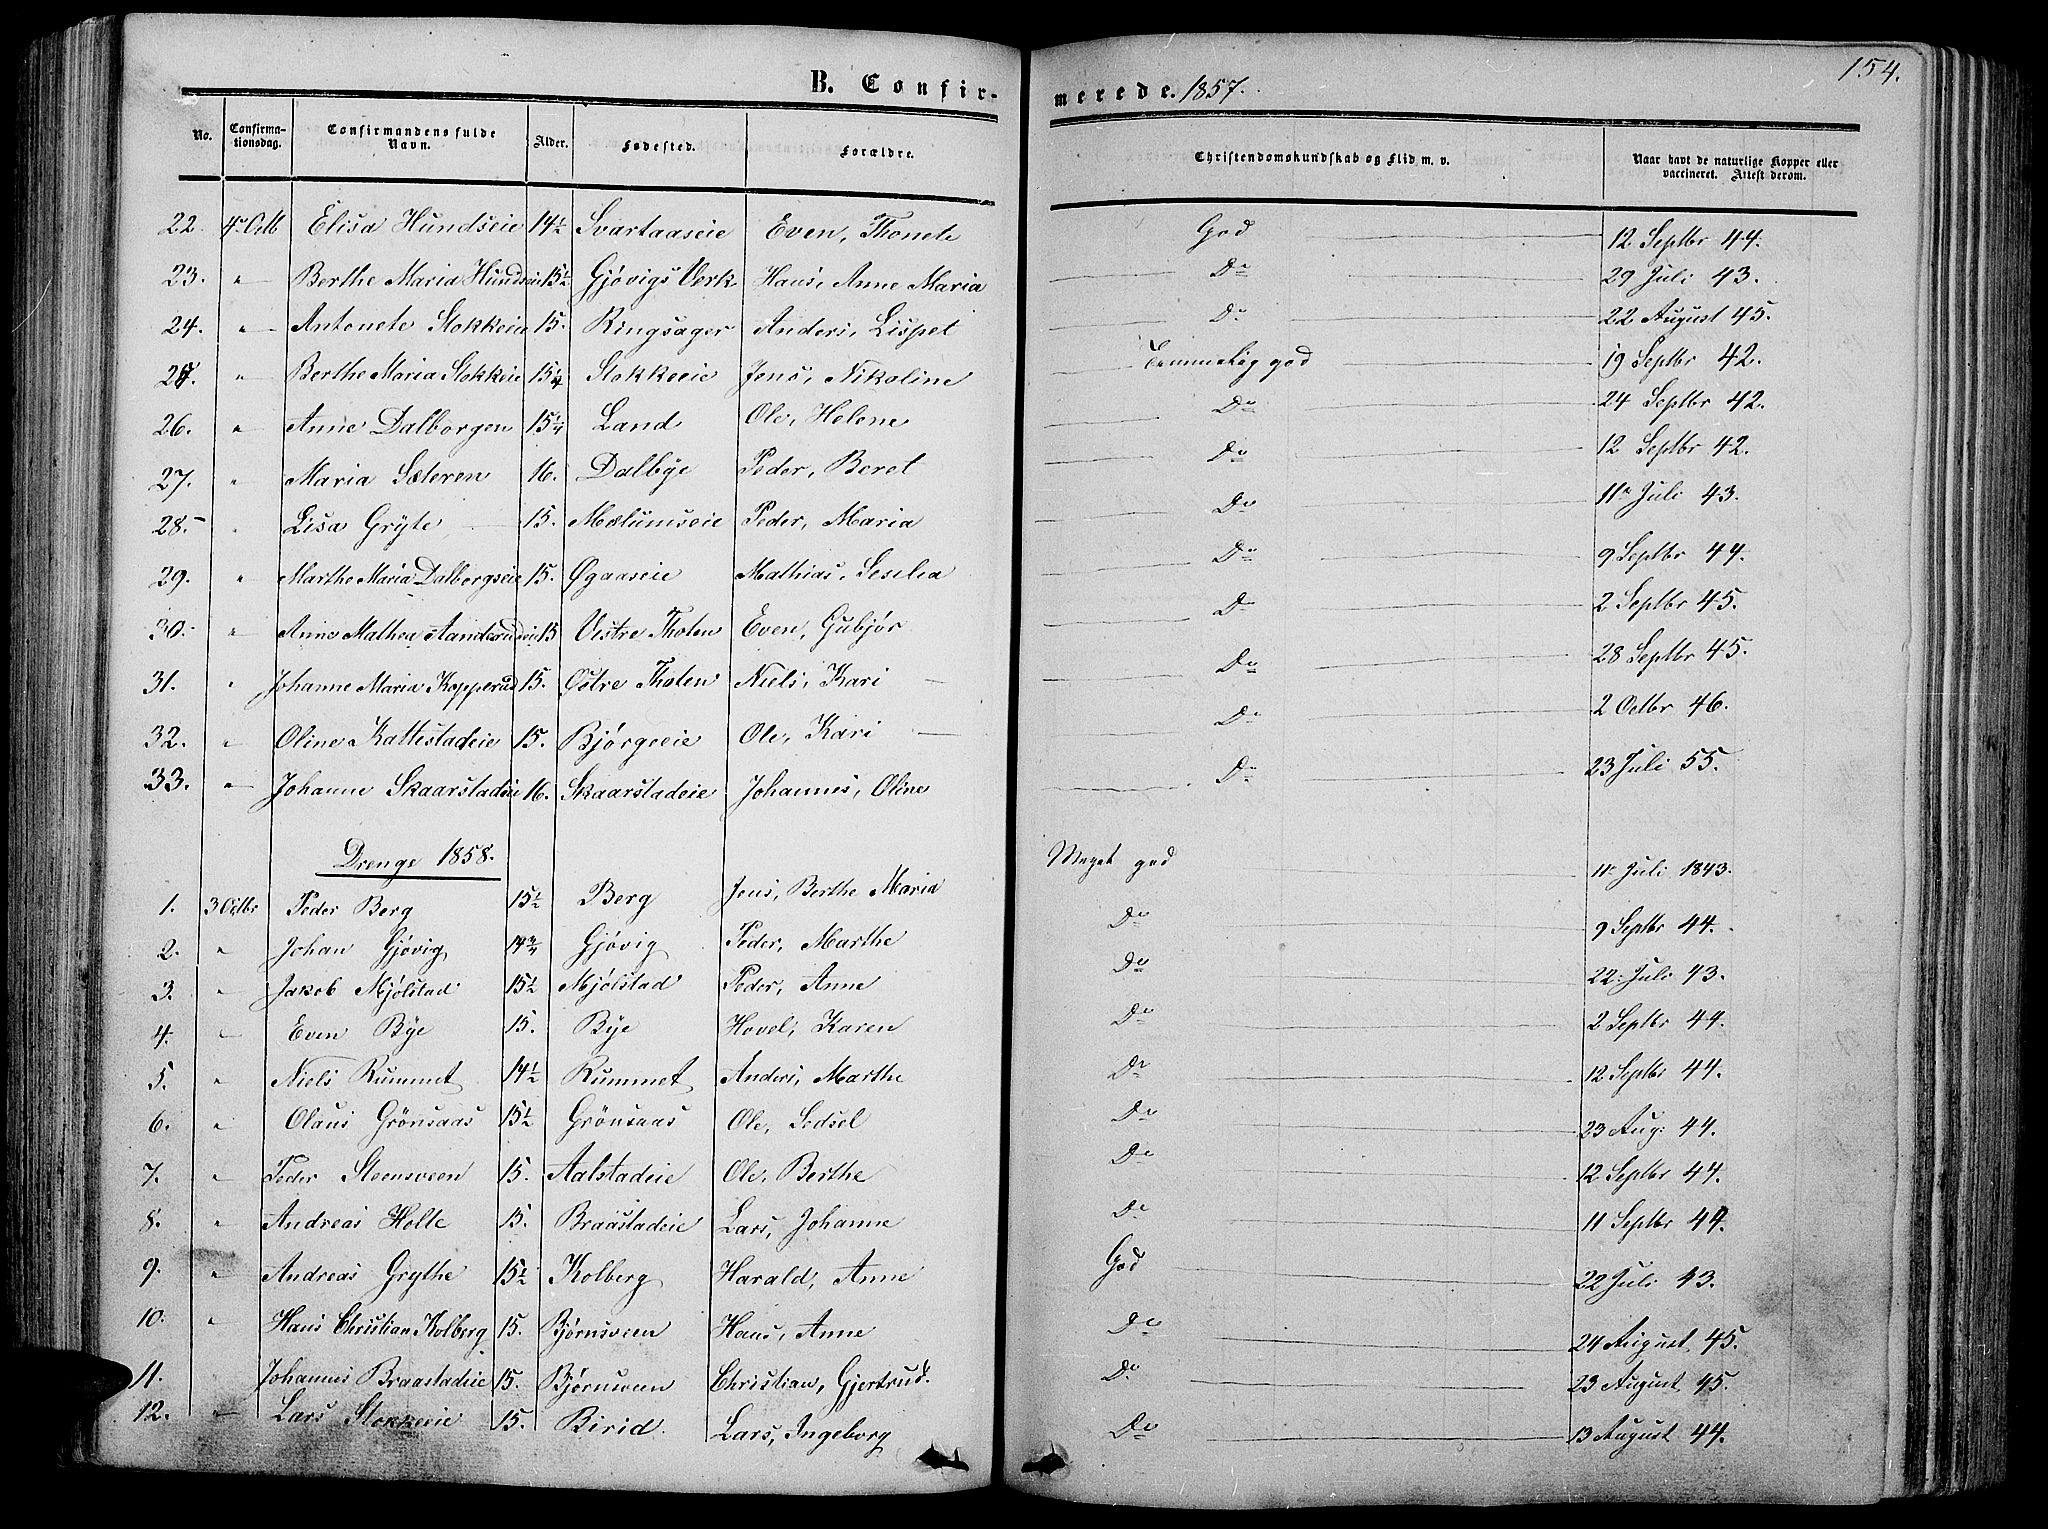 154.
B. Confirmerede. 1857.
No. Confirmationsdag. Confirmandens fulde Navn. Alder. Fødested. Forældre. Christendomskundskab og Flid m. v. Naar havt de naturlige Kopper eller vaccineret. Attest derom.
22. 4de Octb Elisa Hundseie 14½ Svartaaseie Even, Thonete God 12 Septbr 44.
23. " Berthe Maria Hundseie 15½ Gjøvigs Verk Hans, Anne Maria Do 29 Juli 43.
24. " Antonete Stokkeeie 15. Ringsager Anders, Lispet Do 22 August 45.
25. " Berthe Maria Stokkeie 15¼ Stokkeeie Jens, Nikoline Temmelig god 19 Septbr 42.
26. " Anne Dalborgen 15¼ Land Ole, Helene Do 24 Septbr 42.
27. " Maria Sæteren 16. Dalbye Peder, Beret Do 12 Septbr 42.
28. " Lisa Gryte 15. Mælumseie Peder, Maria Do 11te Juli 43.
29. " Marthe Maria Dalbergseie 15. Øgaaseie Mathias, Sesilia Do 9 Septbr 44.
30. " Anne Mathea Aanderudseie 15 Vestre Thoten Even, Gubjør Do 2 Septbr 45.
31. " Johanne Maria Kopperud 15. Østre Thoten Niels, Kari Do 28 Septbr 45.
32. " Oline Kattestadeie 15. Bjørgeeie Ole, Kari Do 2 Octbr 46.
33. " Johanne Skaarstadeie 16. Skaarstadeie Johannes, Oline Do 23 Juli 55.
Drenge 1858.
1. 3 Octbr Peder Berg 15½ Berg Jens, Berthe Maria Meget god 11te Juli 1843.
2. " Johan Gjøvig 14¾ Gjøvig Peder, Marthe Do 9 Septbr 44.
3. " Jakob Mjølstad 15½ Mjølstad Peder, Anne Do 22. Juli 43.
4. " Even Bye 15. Bye Hovel, Karen Do 2 Septbr 44.
5. " Niels Rummet 14½ Rummet Anders, Marthe Do 12 Septbr 44.
6. " Olaus Grönsaas 15½ Grönsaas Ole, Sedsel Do 23 Aug: 44.
7. " Peder Steensveen 15. Aalstadeie Ole, Berthe Do 12 Septbr 44.
8. " Andreas Holte 15. Braastadeie Lars, Johanne Do 11 Septbr 44.
9. " Andreas Grythe 15½ Kolberg Harald, Anne God 22 Juli 43.
10. " Hans Christian Kolberg 15. Bjørnsveen Hans, Anne Do 24 August 45.
11. Johannes Braastadeie 15. Bjørnsveen Christian, Gjertrud. Do 23 August 45.
12. " Lars Stokkeeie 15. Birid. Lars, Ingeborg Do 13 August 44.